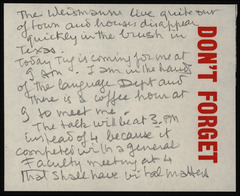 The Weismanns live quite out
of town and houses disappear
quickly in the brush in
Texas.
Today Ty is coming for me at
9 am. I am in the hands
of the Language Dept and
there is a coffee hour at
9 to meet me.
The talk will be at 3. PM
instead of 4 because it
competes with a general
Faculty meeting at 4
that shall have
DON'T FORGET